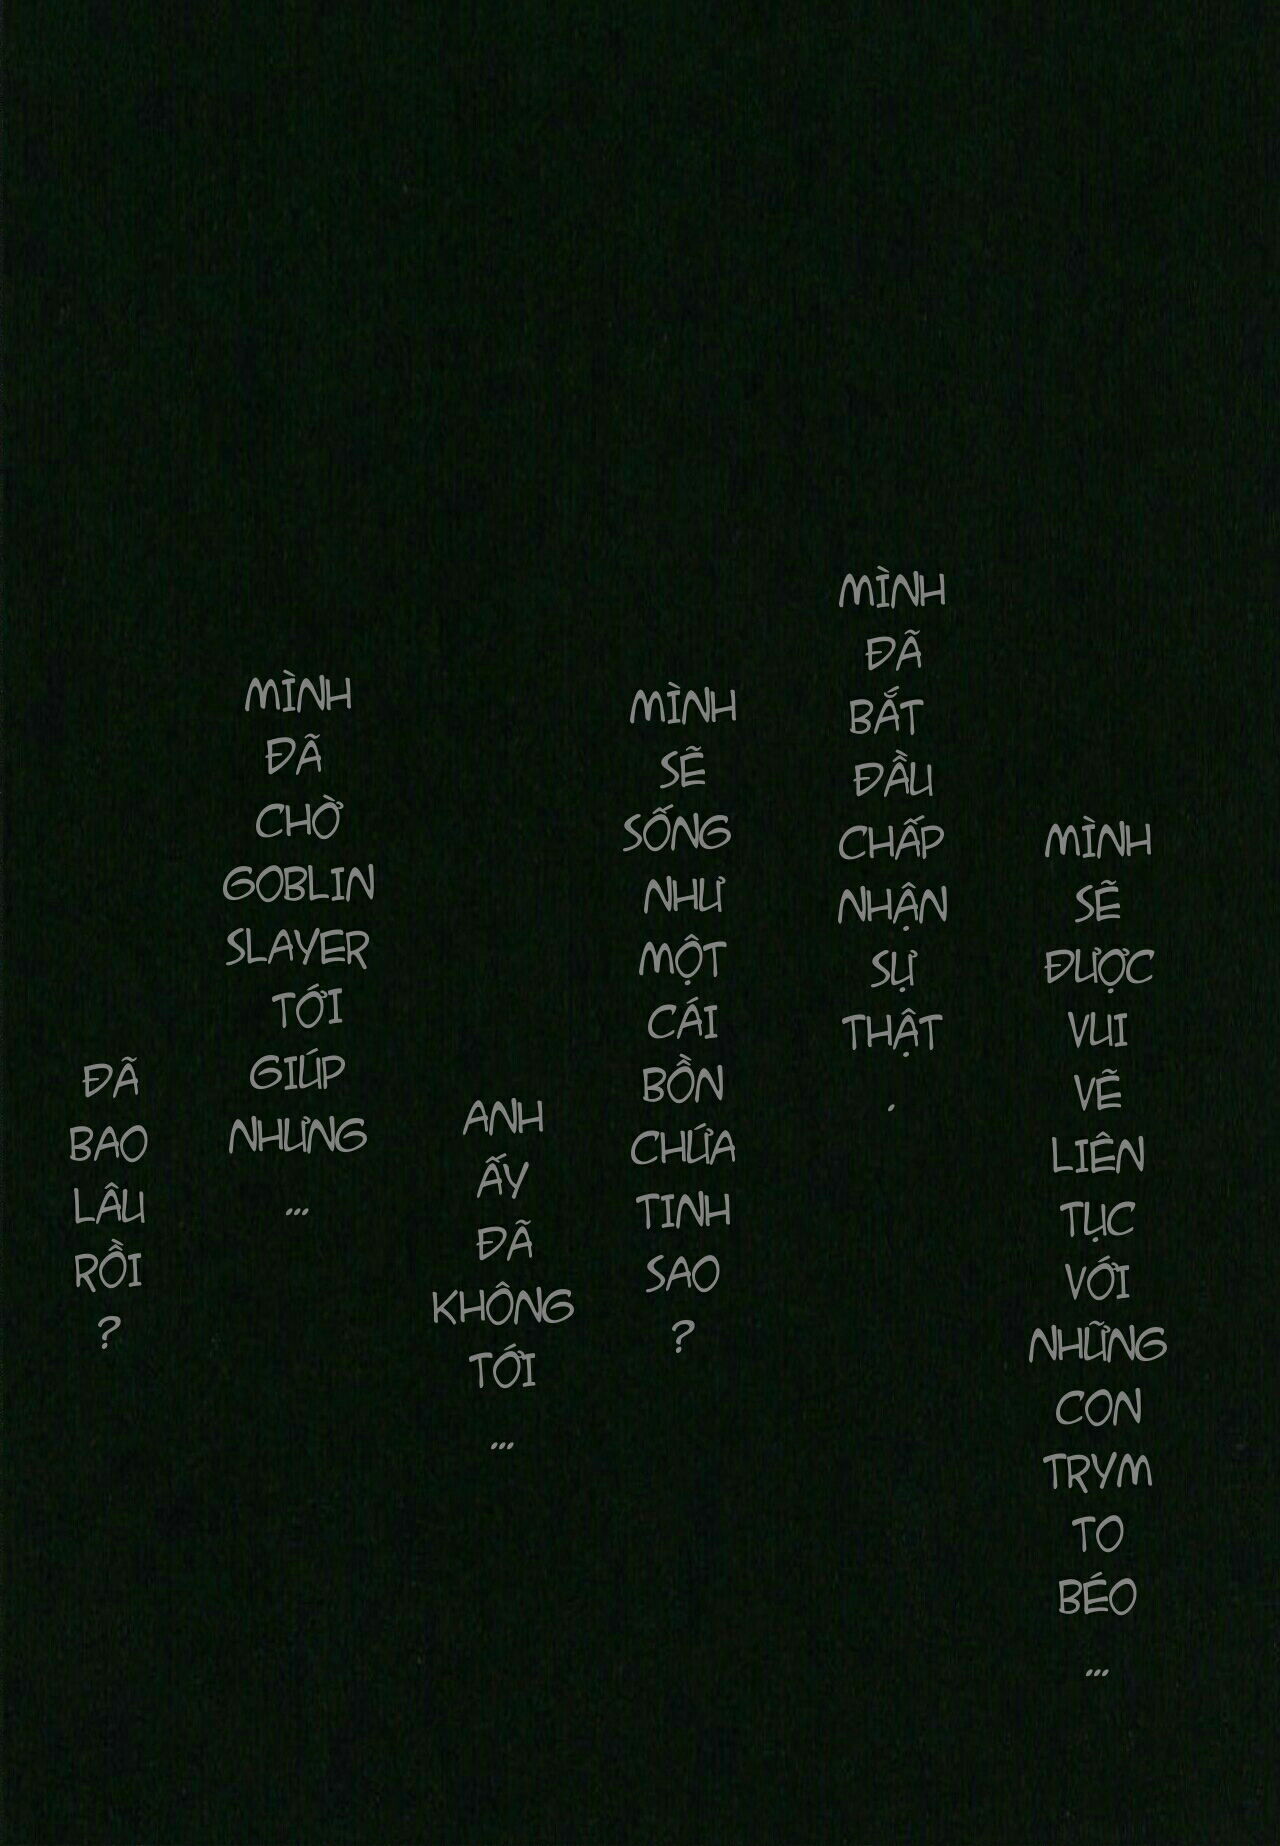 ĐÃ
BAO
LÂU
RỒI
?
MÌNH
ĐÃ
CHỜ
GOBLIN
SLAYER
TỚI
GIÚP
NHƯNG
...
ANH
ẤY
ĐÃ
KHÔNG
TỚI
...
MÌNH
SẼ
SỐNG
NHƯ
MỘT
CÁI
BỒN
CHỨA
TINH
SAO
?
MÌNH
ĐÃ
BẮT
ĐẦU
CHẤP
NHẬN
SỰ
THẬT
.
MÌNH
SẼ
ĐƯỢC
VUI
VẼ
LIÊN
TỤC
VỚI
NHỮNG
CON
TRYM
TO
BÉO
...